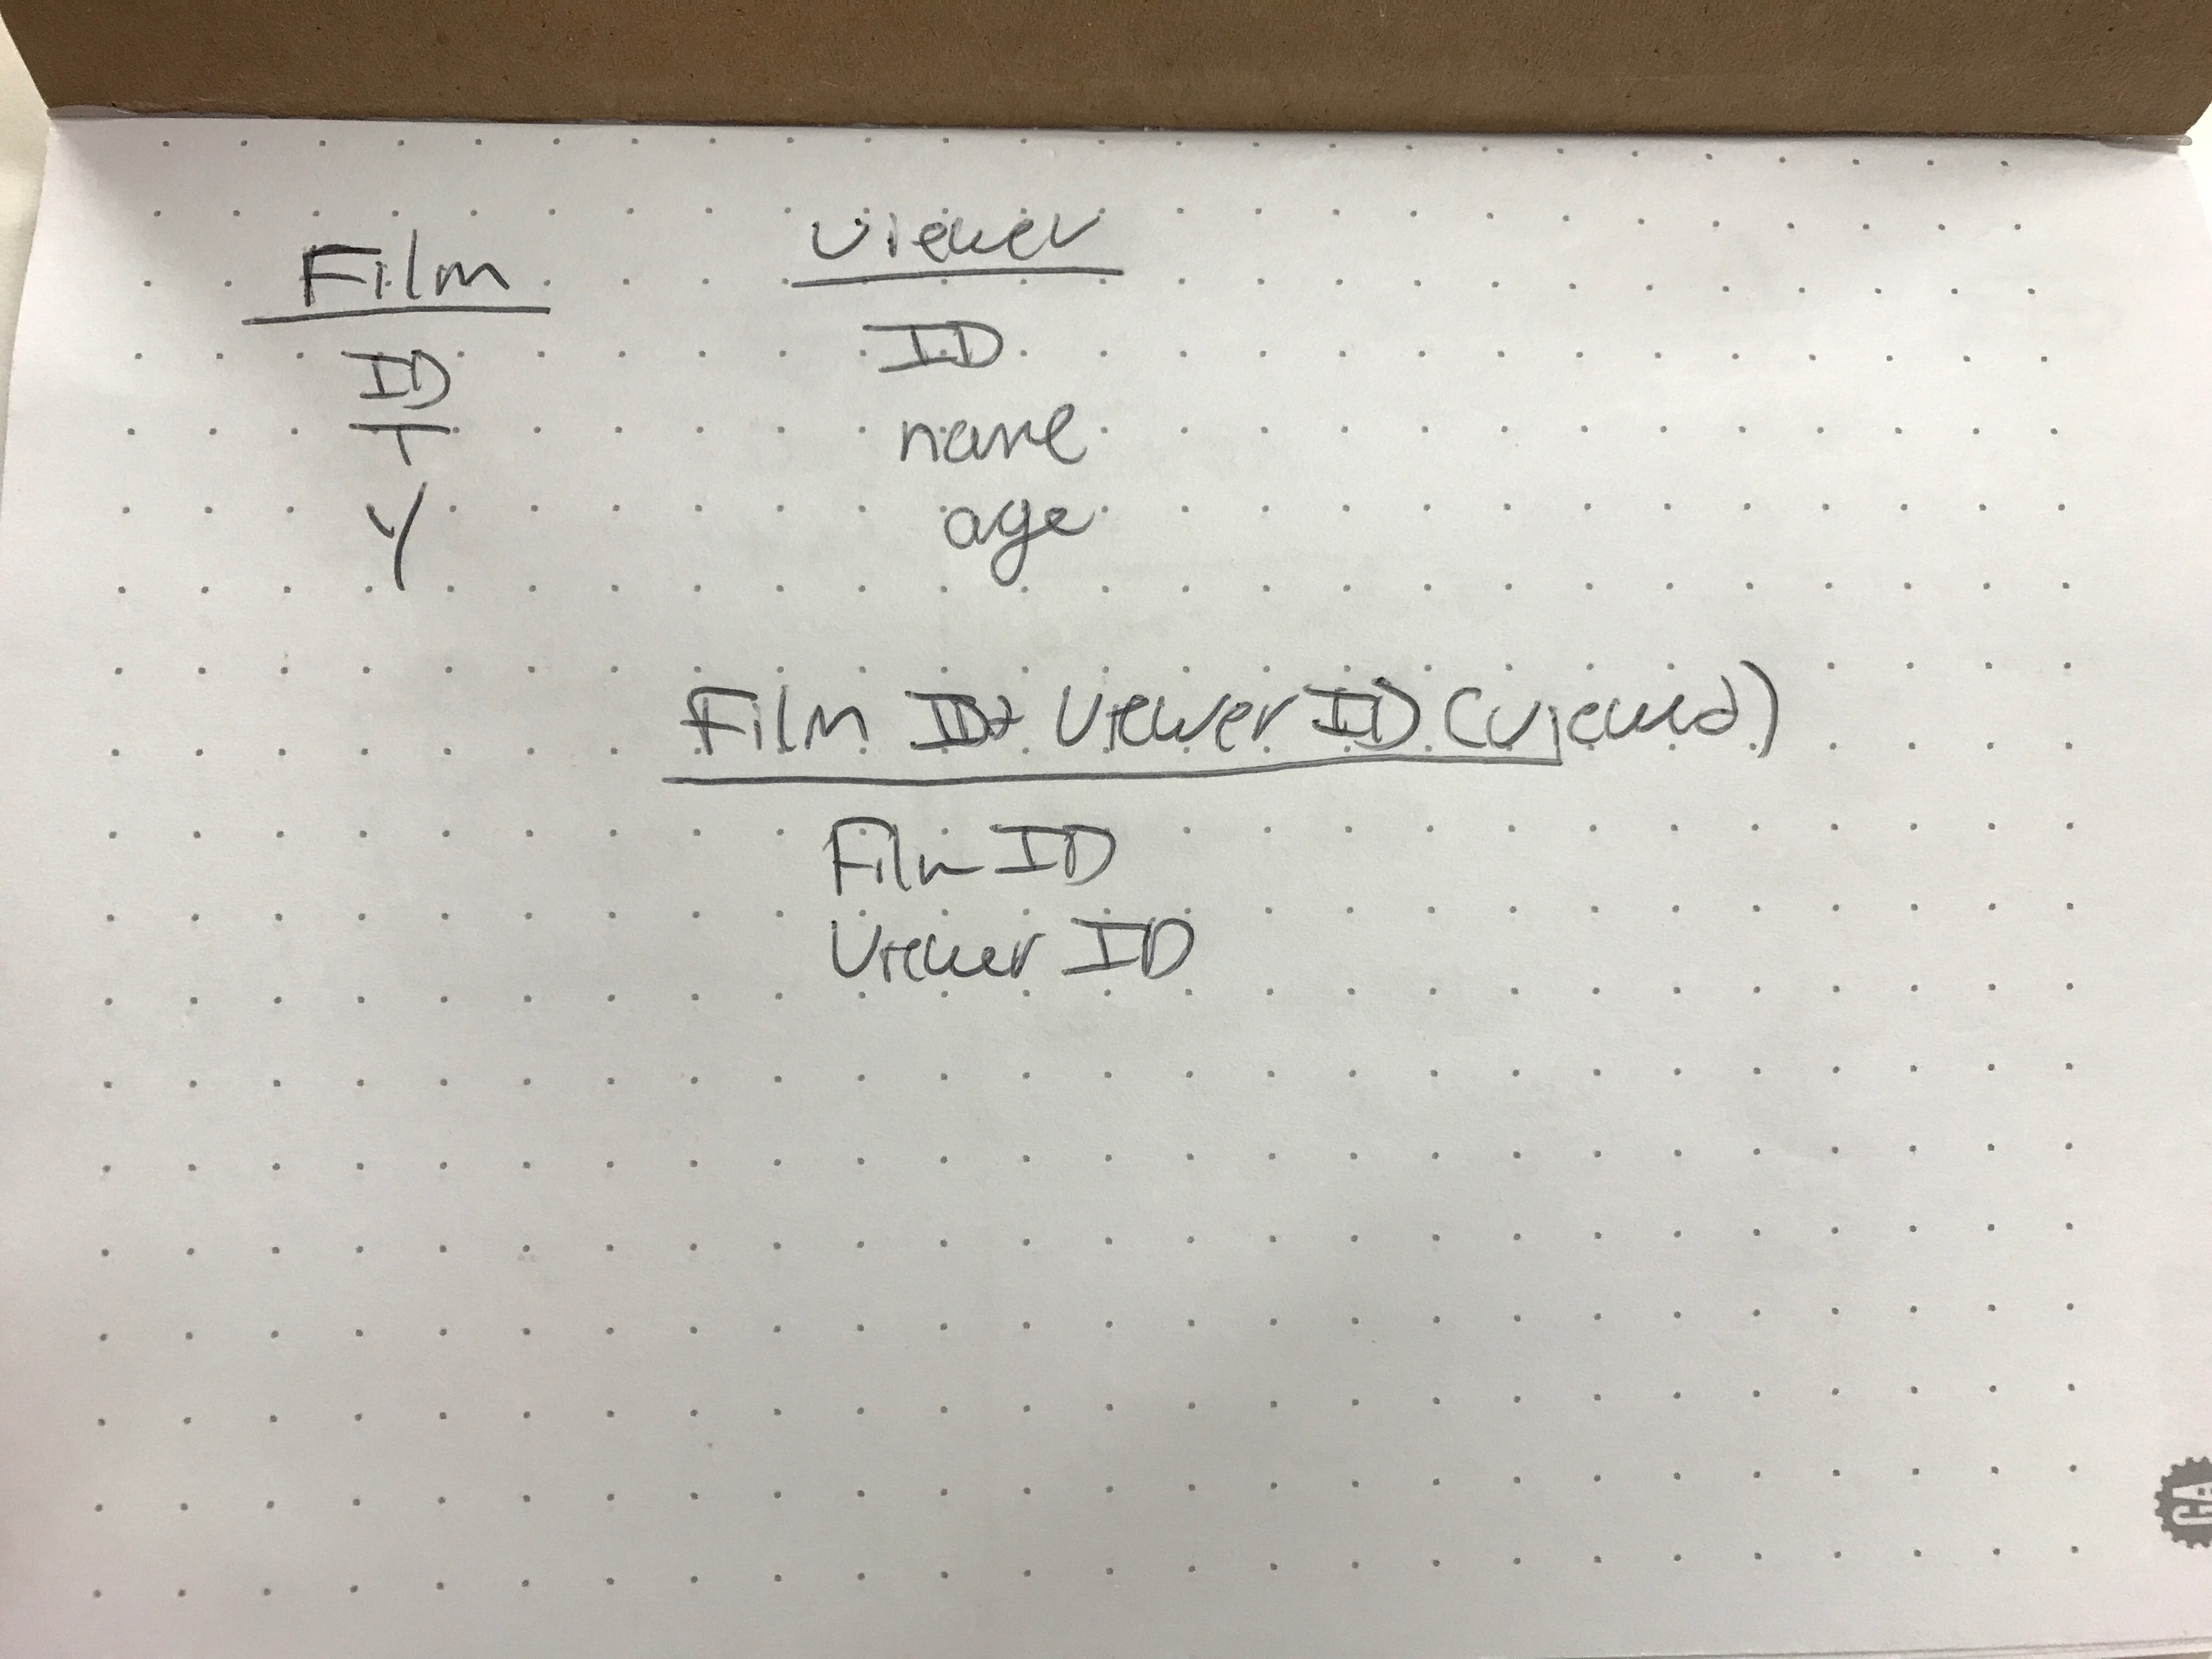 Film
ID
T
Y
Viewer
ID
name
age
Film ID + Viewer ID (Viewed)
Film ID
Viewer ID
GA